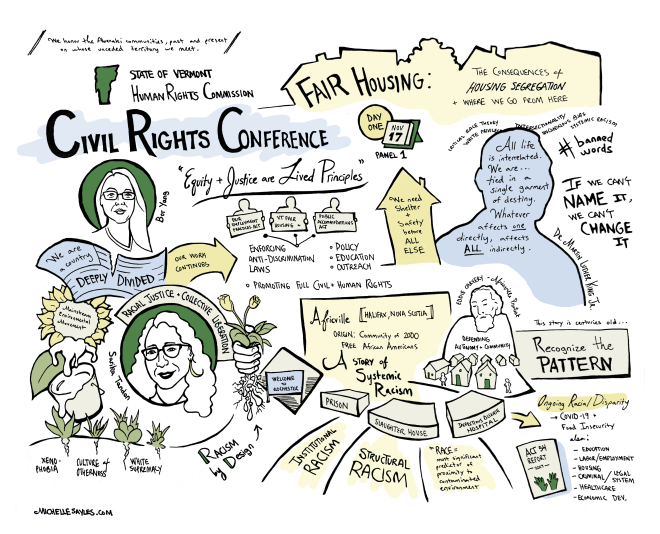 We honor the Abenaki communities, past and present
on whose unceded territory we meet.
STATE OF VERMONT
HUMAN RIGHTS COMMISSION
CIVIL RIGHTS CONFERENCE
FAIR HOUSING:
THE CONSEQUENCES OF
HOUSING SEGREGATION
+ WHERE WE GO FROM HERE
DAY
ONE
NOV
17
PANEL 1
"Equity + Justice are Lived Principles"
Bor Yang
FAIR
EMPLOYMENT
PRACTICES ACT
VT FAIR
HOUSING
PUBLIC
ACCOMMODATIONS
ACT
ENFORCING
ANTI-DISCRIMINATION
LAWS
POLICY
EDUCATION
OUTREACH
PROMOTING FULL CIVIL + HUMAN RIGHTS
We need
Shelter
+
Safety
before
ALL
ELSE
CRITICAL RACE THEORY
WHITE PRIVILEGE
INTERSECTIONALITY
UNCONSCIOUS BIAS
SYSTEMIC RACISM
# banned
words
All life
is interrelated.
We are...
tied in a
single garment
of destiny.
Whatever
affects one
directly, affects
ALL indirectly.
Dr. Martin Luther King Jr.
IF WE CAN'T
NAME IT,
WE CAN'T
CHANGE
IT
We are
a country
DEEPLY DIVIDED
OUR WORK
CONTINUES
Mainstream
Environmental
Movement
RACIAL JUSTICE + COLLECTIVE LIBERATION
XENO-
PHOBIA
CULTURE of
OTHERNESS
WHITE
SUPREMACY
RACISM
by Design
WELCOME
TO
ROCHESTER
Africville [HALIFAX, NOVA SCOTIA]
ORIGIN: Community of 2000
FREE African Americans
A STORY OF
Systemic
Racism
EDDIE CARVERY - Africville Resident
DEFENDING
AUTONOMY + COMMUNITY
PRISON
SLAUGHTER HOUSE
INFECTIOUS DISEASE
HOSPITAL
INSTITUTIONAL
RACISM
STRUCTURAL
RACISM
"RACE =
most significant
predictor of
proximity to
contaminated
environment"
This story is centuries old...
Recognize the
PATTERN
Ongoing Racial Disparity
→ COVID-19 +
Food Insecurity
also:
- EDUCATION
- LABOR/EMPLOYMENT
- HOUSING
- CRIMINAL/LEGAL
SYSTEM
- HEALTHCARE
- ECONOMIC DEV.
ACT 54
REPORT
MICHELLESAYLES.COM